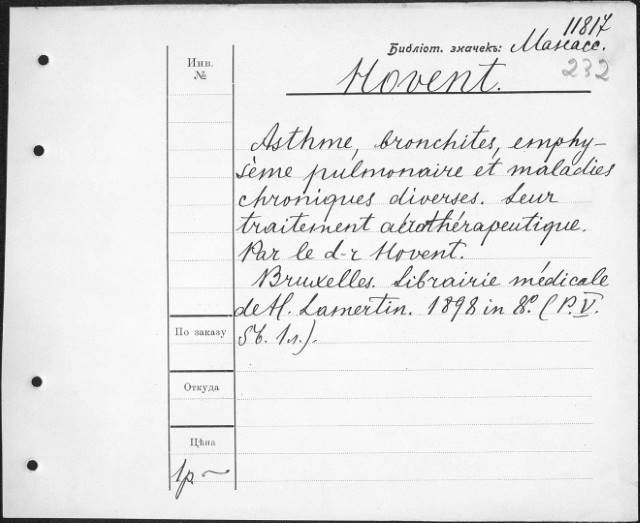 11817
Библіот. значекъ: Массасс.
232
Инв.
№
Hovent.
Asthme, bronchites, emphy-
sème pulmonaire et maladies
chroniques diverses. Leur
traitement aérothérapeutique.
Par le d-r Hovent.
Bruxelles. Librairie médicale
de H. Lamertin. 1898 in 8º. (P. V.
56. 1л.).
По заказу
Откуда
Цѣна
1р. ~